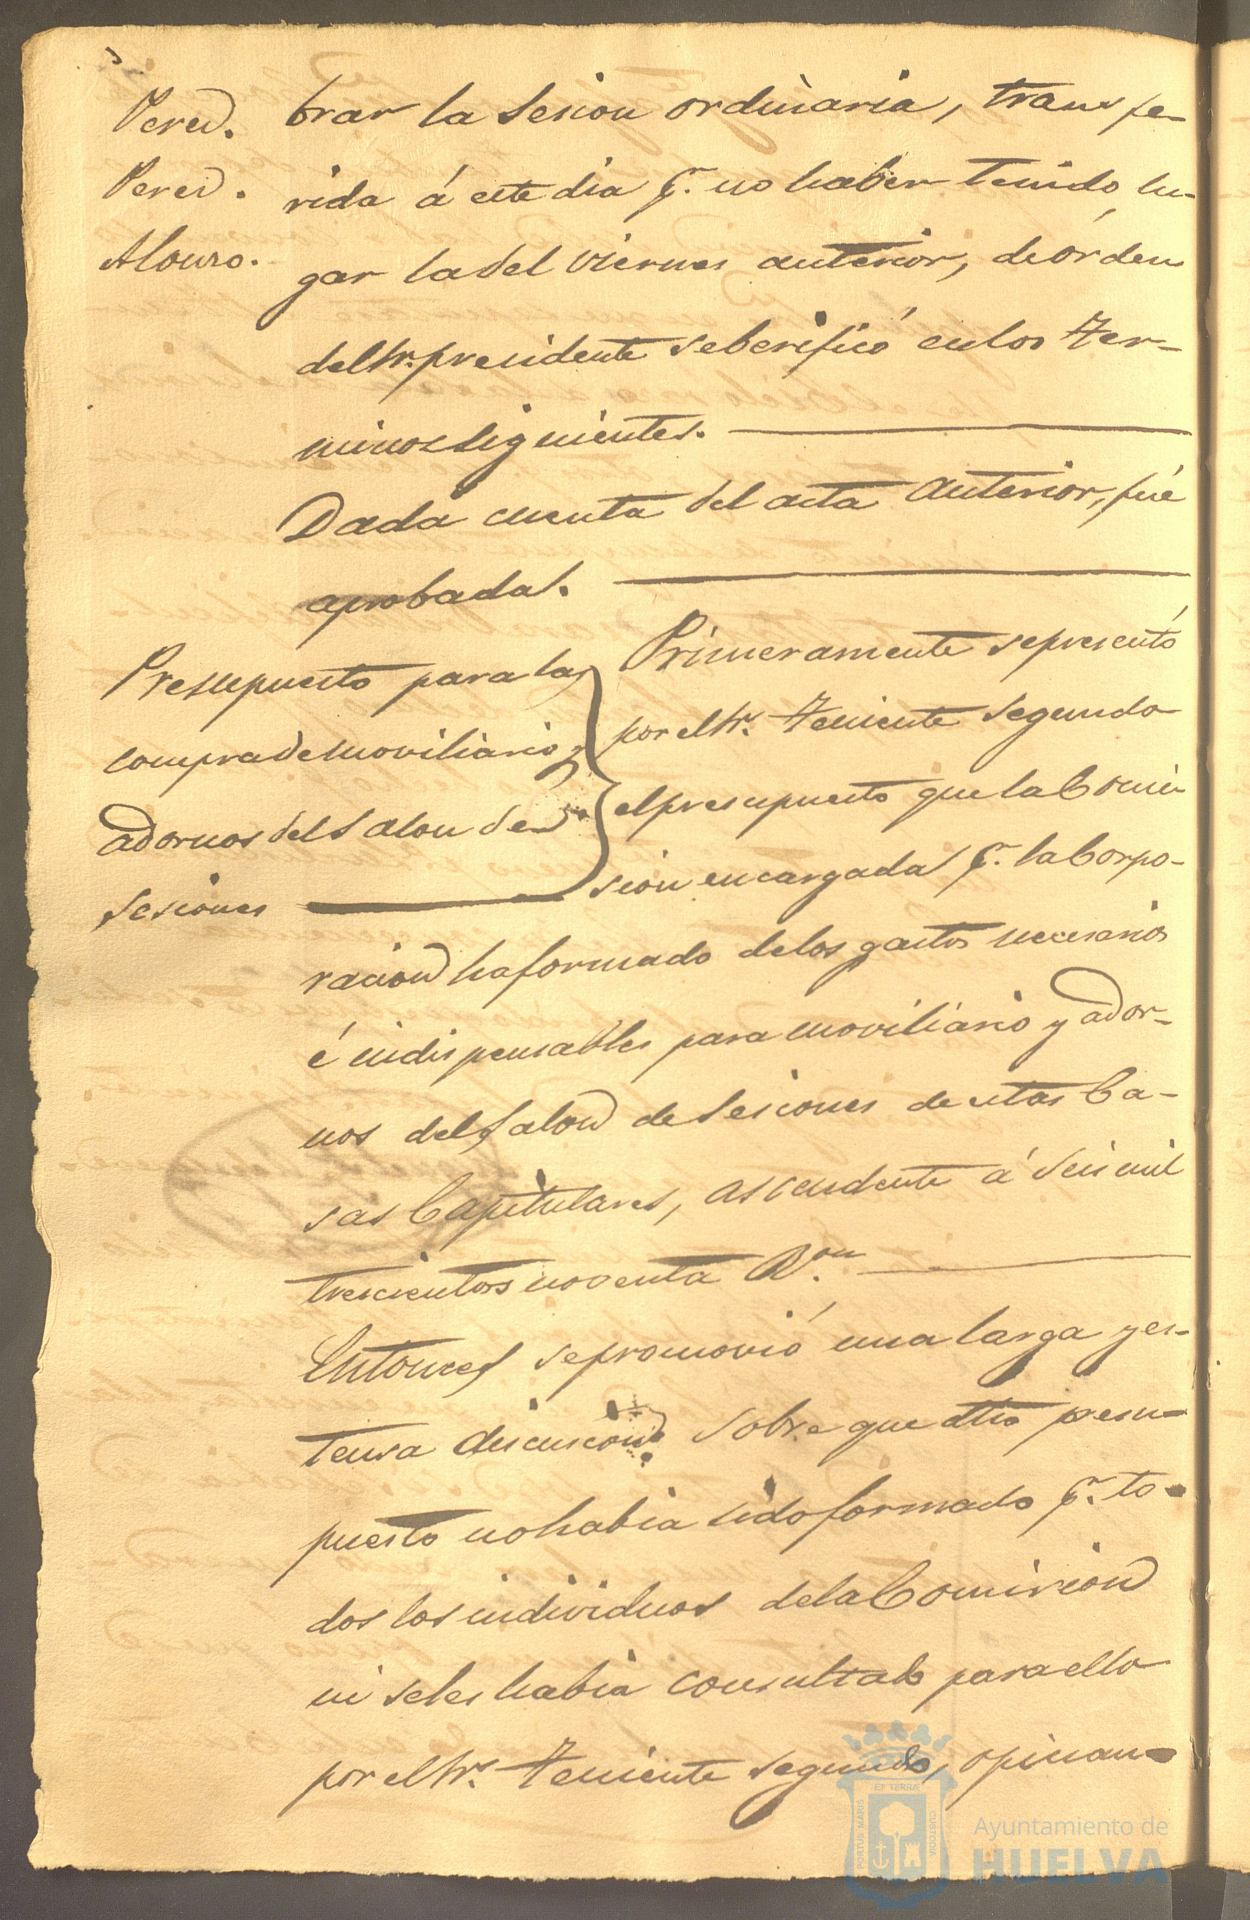 Pered.
Pered.
Alonso.
brar la Sesion ordinaria, transfe-
rida á este dia pr. no haber tenido lu-
gar la del viernes anterior, de órden
del Sr. presidente se berificó en los ter-
minos siguientes.
Dada cuenta del acta anterior, fué
aprobada.
Presupuesto para las
compra de moviliario y
adornos del Salon de
Sesiones
Primeramente se presentó
por el Sr. Teniente segundo
el presupuesto que la Comi
sion encargada pr. la Corpo-
racion ha formado de los gastos necesarios
é indispensables para moviliario y ador-
nos del Salon de Sesiones de estas Ca-
sas Capitulares, ascendente á seis mil
trescientos noventa Rn.
Entonces se promovió una larga y es-
tensa discusion sobre que dho presu-
puesto no habia sido formado pr. to-
dos los individuos de la Comision
ni se les habia consultado para ello
por el Sr. Teniente segundo, opinan-
PORTUS MARIS ET TERRÆ CUSTODIA
Ayuntamiento de
HUELVA